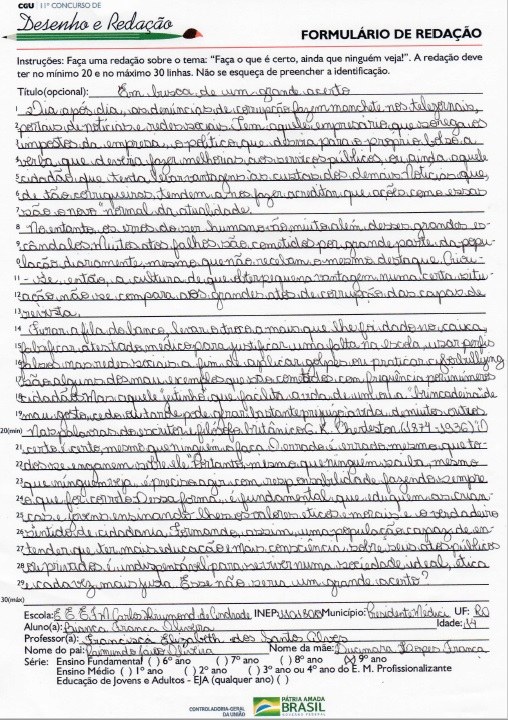 CGU | 11º CONCURSO DE
Desenho e Redação
FORMULÁRIO DE REDAÇÃO
Instruções: Faça uma redação sobre o tema: "Faça o que é certo, ainda que ninguém veja!". A redação deve
ter no mínimo 20 e no máximo 30 linhas. Não se esqueça de preencher a identificação.
Título(opcional): Em busca de um grande acerto
1 Dia após dia, as denúncias de corrupção fazem manchete nos telejornais,
portais de notícias e redes sociais. Tem aquele empresário que sonega os
impostos da empresa, o político que desvia para o próprio bolso a
verba que deveria fazer melhorias aos serviços públicos, ou ainda aquele
cidadão que tenta levar vantagem às custas dos demais. Notícias que,
de tão corriqueiras, tendem a nos fazer acreditar que ações como essas
7 são o novo "normal" da atualidade.
8 No entanto, os erros do ser humano vão muito além desses grandes es-
9 cândalos. Muitos atos falhos são cometidos por grande parte da popu-
lação diariamente, mesmo que não recebam o mesmo destaque. Criou-
11 -se, então, a cultura de que obter pequena vantagem numa certa situ-
12 ação não se compara aos grandes atos de corrupção das capas de
13 revista.
14 Furar a fila do banco, levar o troco a mais que lhe foi dado no caixa,
15 falsificar atestado médico para justificar uma falta na escola, usar perfis
16 falsos nas redes sociais a fim de aplicar golpes ou praticar cyberbullying
17 são alguns dos maus exemplos que são cometidos com frequência por inúmeros
18 cidadãos. Mas aquele "jeitinho" que facilita a vida de um ou a "brincadeira" de
19 mau gosto, cedo ou tarde pode gerar bastante prejuízo à vida de muitos outros.
20(min) Nas palavras do escritor e filósofo britânico G. K. Chesterton (1874-1936) "O
21 certo é certo, mesmo que ninguém o faça. O errado é errado, mesmo que to-
22 dos se enganem sobre ele". Portanto, mesmo que ninguém saiba, mesmo
23 que ninguém veja, é preciso agir com responsabilidade fazendo sempre
24 o que for correto. Dessa forma, é fundamental que eduquem as crian-
25 ças e jovens ensinando-lhes os valores éticos e morais e o verdadeiro
26 sentido de cidadania. Formando, assim, uma população capaz de en-
27 tender que ter mais educação e mais consciência sobre seus atos, públicos
28 ou privados, é indispensável para se viver numa sociedade ideal, ética
29 e cada vez mais justa. Esse não seria um grande acerto?
30(máx)
Escola: E.E.E.F.M Carlos Drummond de Andrade INEP: Município: Presidente Médici UF: RO
Aluno(a): Bianca Franca Oliveira Idade: 14
Professor(a): Francisca Elizabeth dos Santos Alves
Nome do pai: Oliveira Nome da mãe: Franca
Série: Ensino Fundamental ( ) 6º ano ( ) 7º ano ( ) 8º ano (X) 9º ano
Ensino Médio ( ) 1º ano ( ) 2º ano ( ) 3º ano ou 4º ano do E. M. Profissionalizante
Educação de Jovens e Adultos - EJA (qualquer ano) ( )
CONTROLADORIA-GERAL
DA UNIÃO
PÁTRIA AMADA
BRASIL
GOVERNO FEDERAL